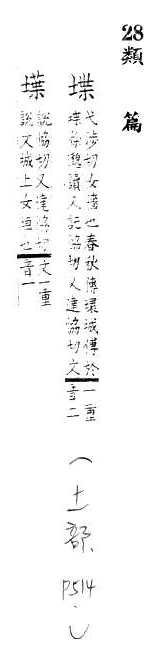 28類篇
堞 弋涉切女墻也春秋傳環城傅於
堞徐邈讀又託協切又達協切文一重音二
㙪 託協切又達協切文一重
說文城上女垣也音一
(土部. P514.)